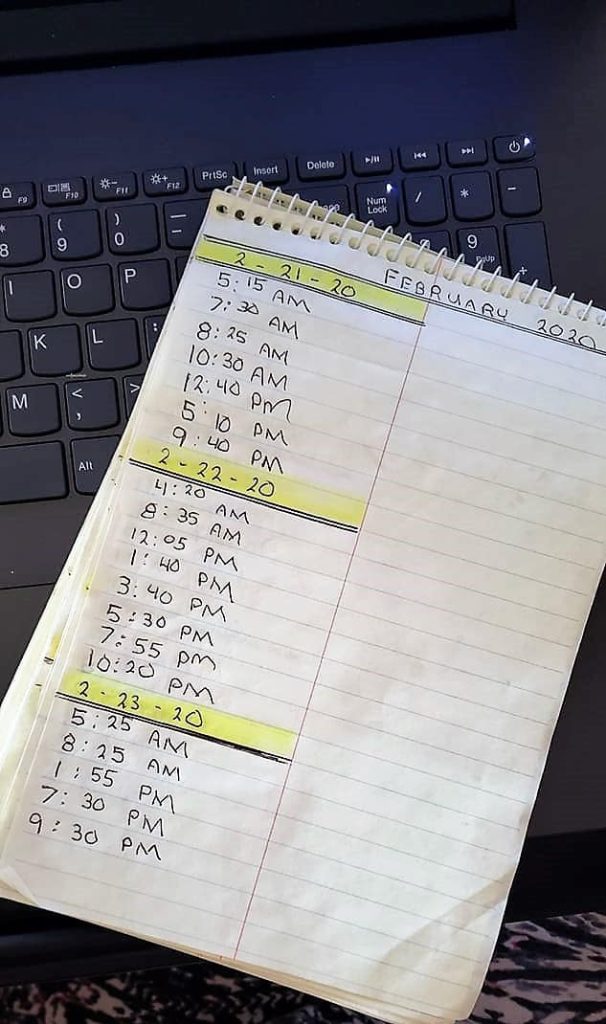 F9 F10 F11 F12 PrtSc Insert Delete
* 8 ( 9 ) 0 Num Lock / * -
I O P 9 PgUp +
K L
M < , >
Alt
FEBRUARY 2020
2-21-20
5:15 AM
7:30 AM
8:25 AM
10:30 AM
12:40 PM
5:10 PM
9:40 PM
2-22-20
4:20 AM
8:35 AM
12:05 PM
1:40 PM
3:40 PM
5:30 PM
7:55 PM
10:20 PM
2-23-20
5:25 AM
8:25 AM
1:55 PM
7:30 PM
9:30 PM